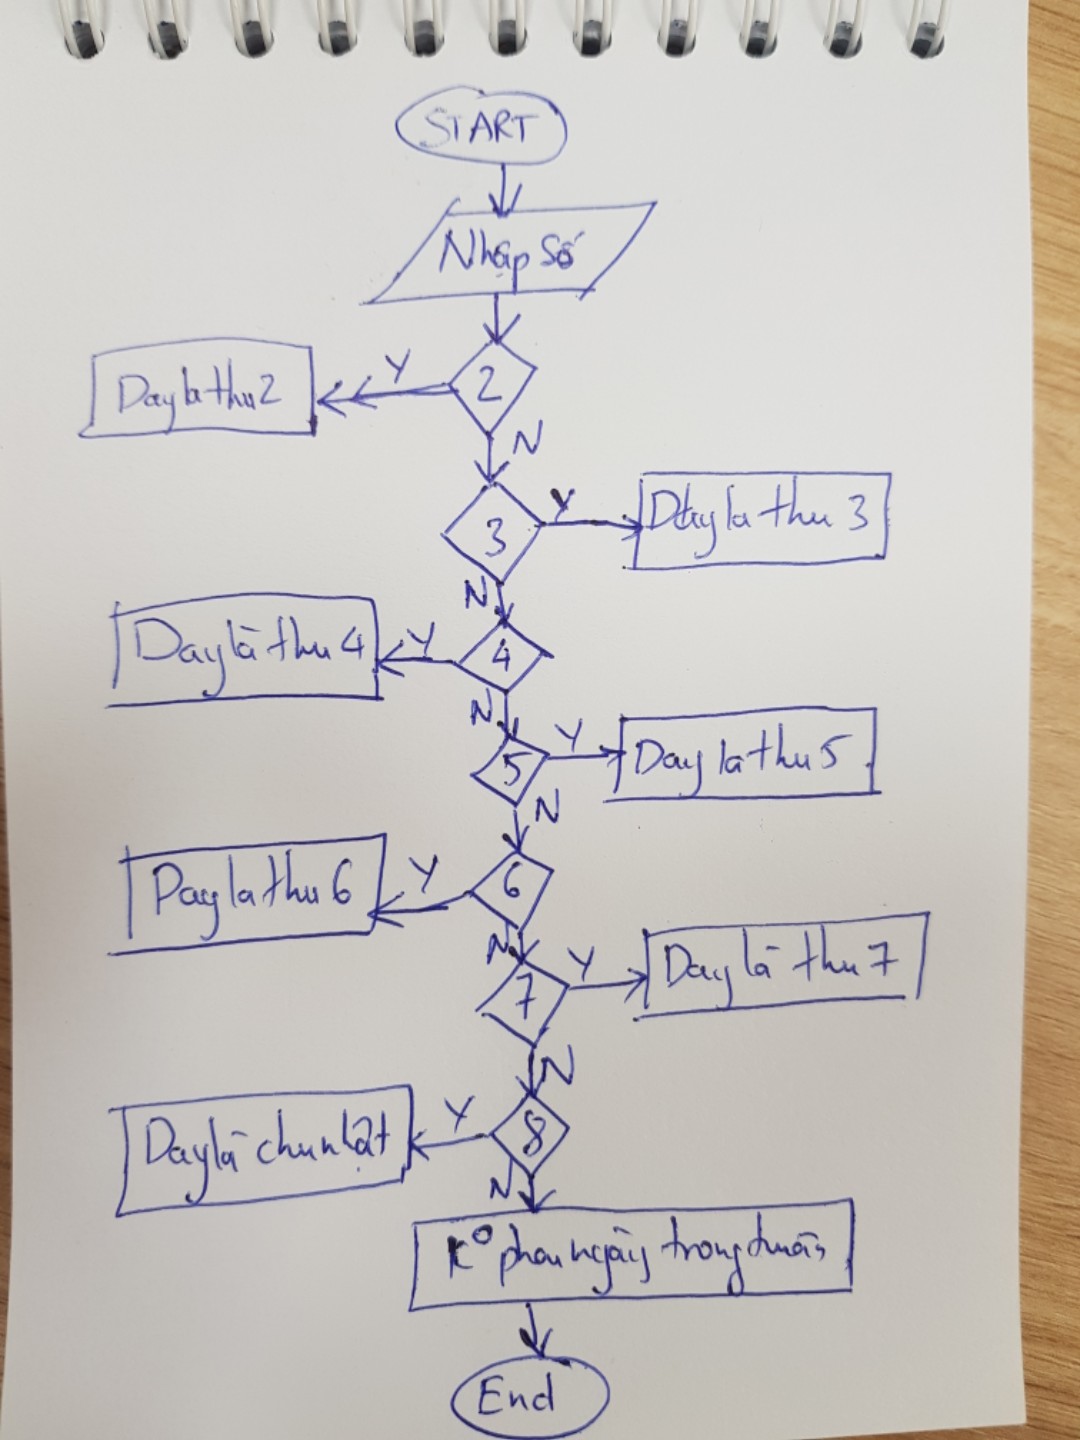 START
Nhập Số
2
Y
Day la thu 2
N
3
Y
Day la thu 3
N
4
Y
Day là thu 4
N
5
Y
Day là thu 5
N
6
Y
Day la thu 6
N
7
Y
Day là thu 7
N
8
Y
Day là chu nhật
N
K° phai ngày trong tuần
End